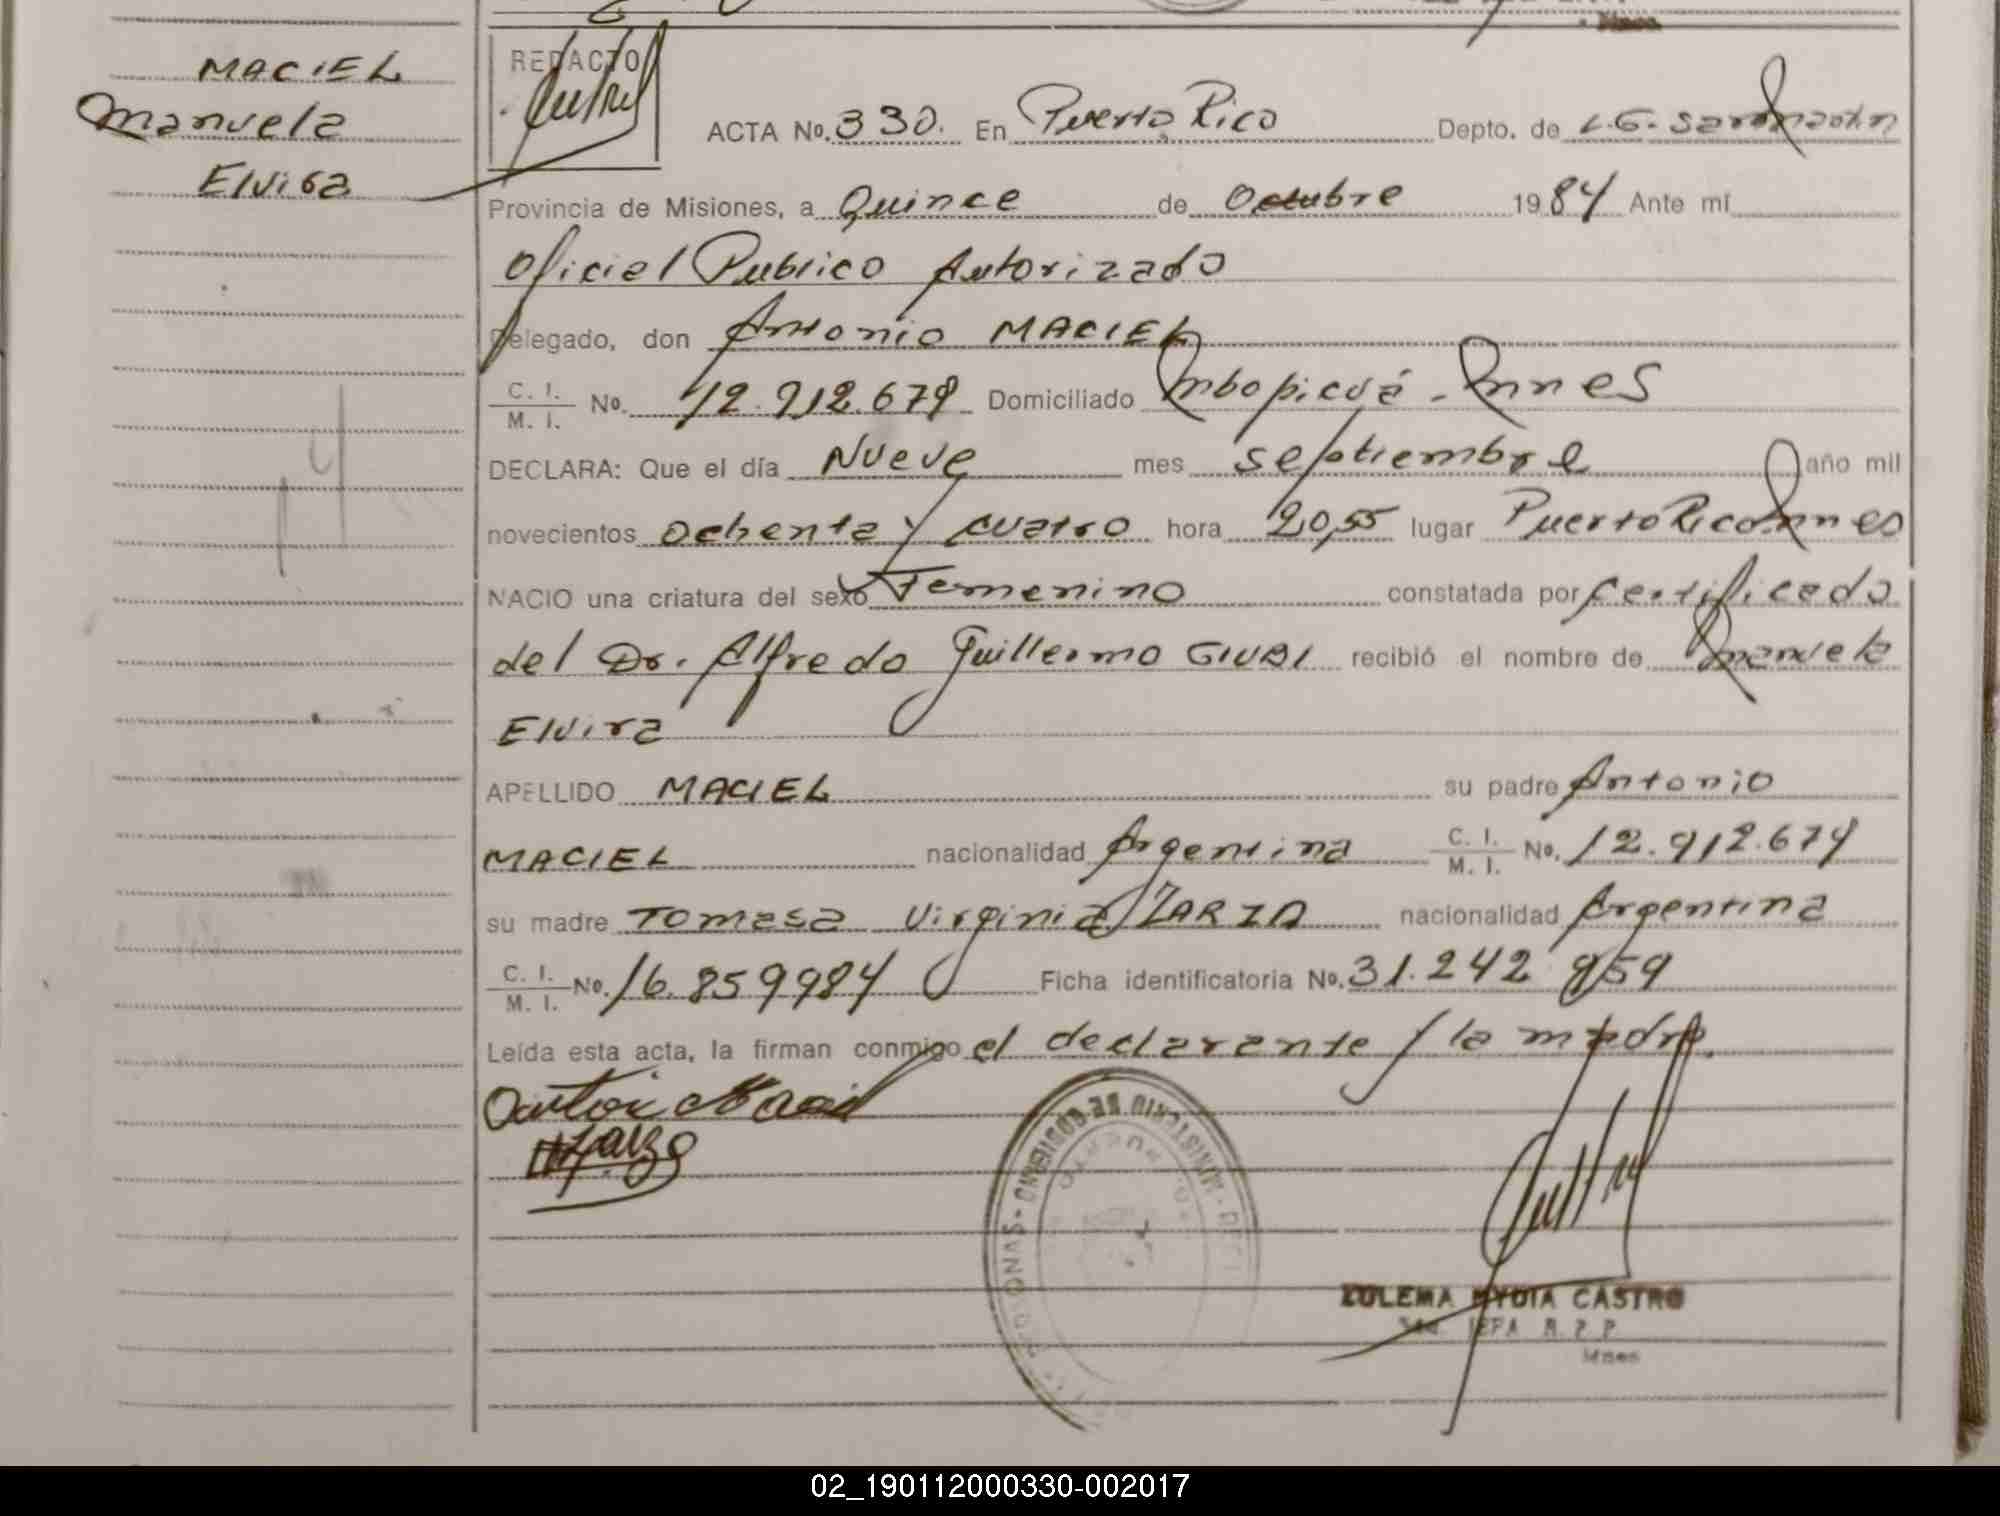 MACIEL
Manuela
Elvira
REDACTO
ACTA No. 330. En Puerto Rico Depto. de L.G. San Martin
Provincia de Misiones, a Quince de Octubre 1984 Ante mí
Oficial Publico Autorizado
Delegado, don Antonio MACIEL
C. I.
M. I. No. 12.912.679 Domiciliado Mbopicuá - Mnes
DECLARA: Que el día Nueve mes septiembre año mil
novecientos ochenta y cuatro hora 20,55 lugar Puerto Rico Mnes
NACIO una criatura del sexo Femenino constatada por Certificado
del Dr. Alfredo Guillermo recibió el nombre de Manuela
Elvira
APELLIDO MACIEL su padre Antonio
MACIEL nacionalidad Argentina C. I.
M. I. No. 12.912.679
su madre Tomasa Virginia ZARZA nacionalidad Argentina
C. I.
M. I. No. 16.859984 Ficha identificatoria No. 31.242 959
Leída esta acta, la firman conmigo el declarante y la madre.
MINISTERIO DE GOBIERNO
ZULEMA NYDIA CASTRO
JEFA R. P. P.
Mnes
02_190112000330-002017